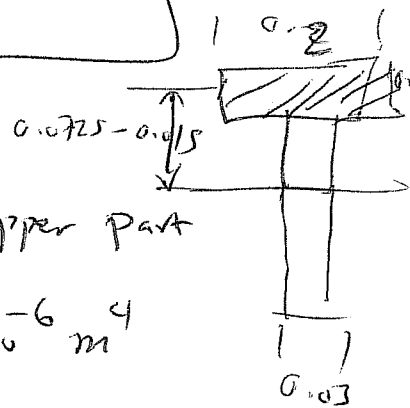 0.2
0.
0.0725-0.015
pper Part
-6 m^4
0.03